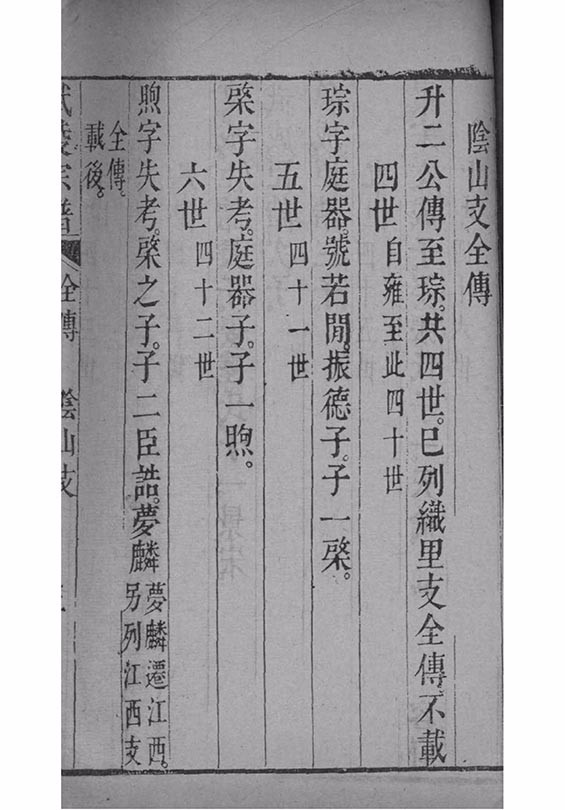 陰山支全傳
升二公傳至琮。共四世。已列織里支全傳。不載
四世 自雍至此四十世
琮字庭器。號若閒。振德子。子一棨。
五世 四十一世
棨字失考。庭器子。子一煦。
六世 四十二世
煦字失考。棨之子。子二臣誥。夢麟 夢麟遷江西。另列江西支
全傳。載後。
宗譜 全傳 陰山支